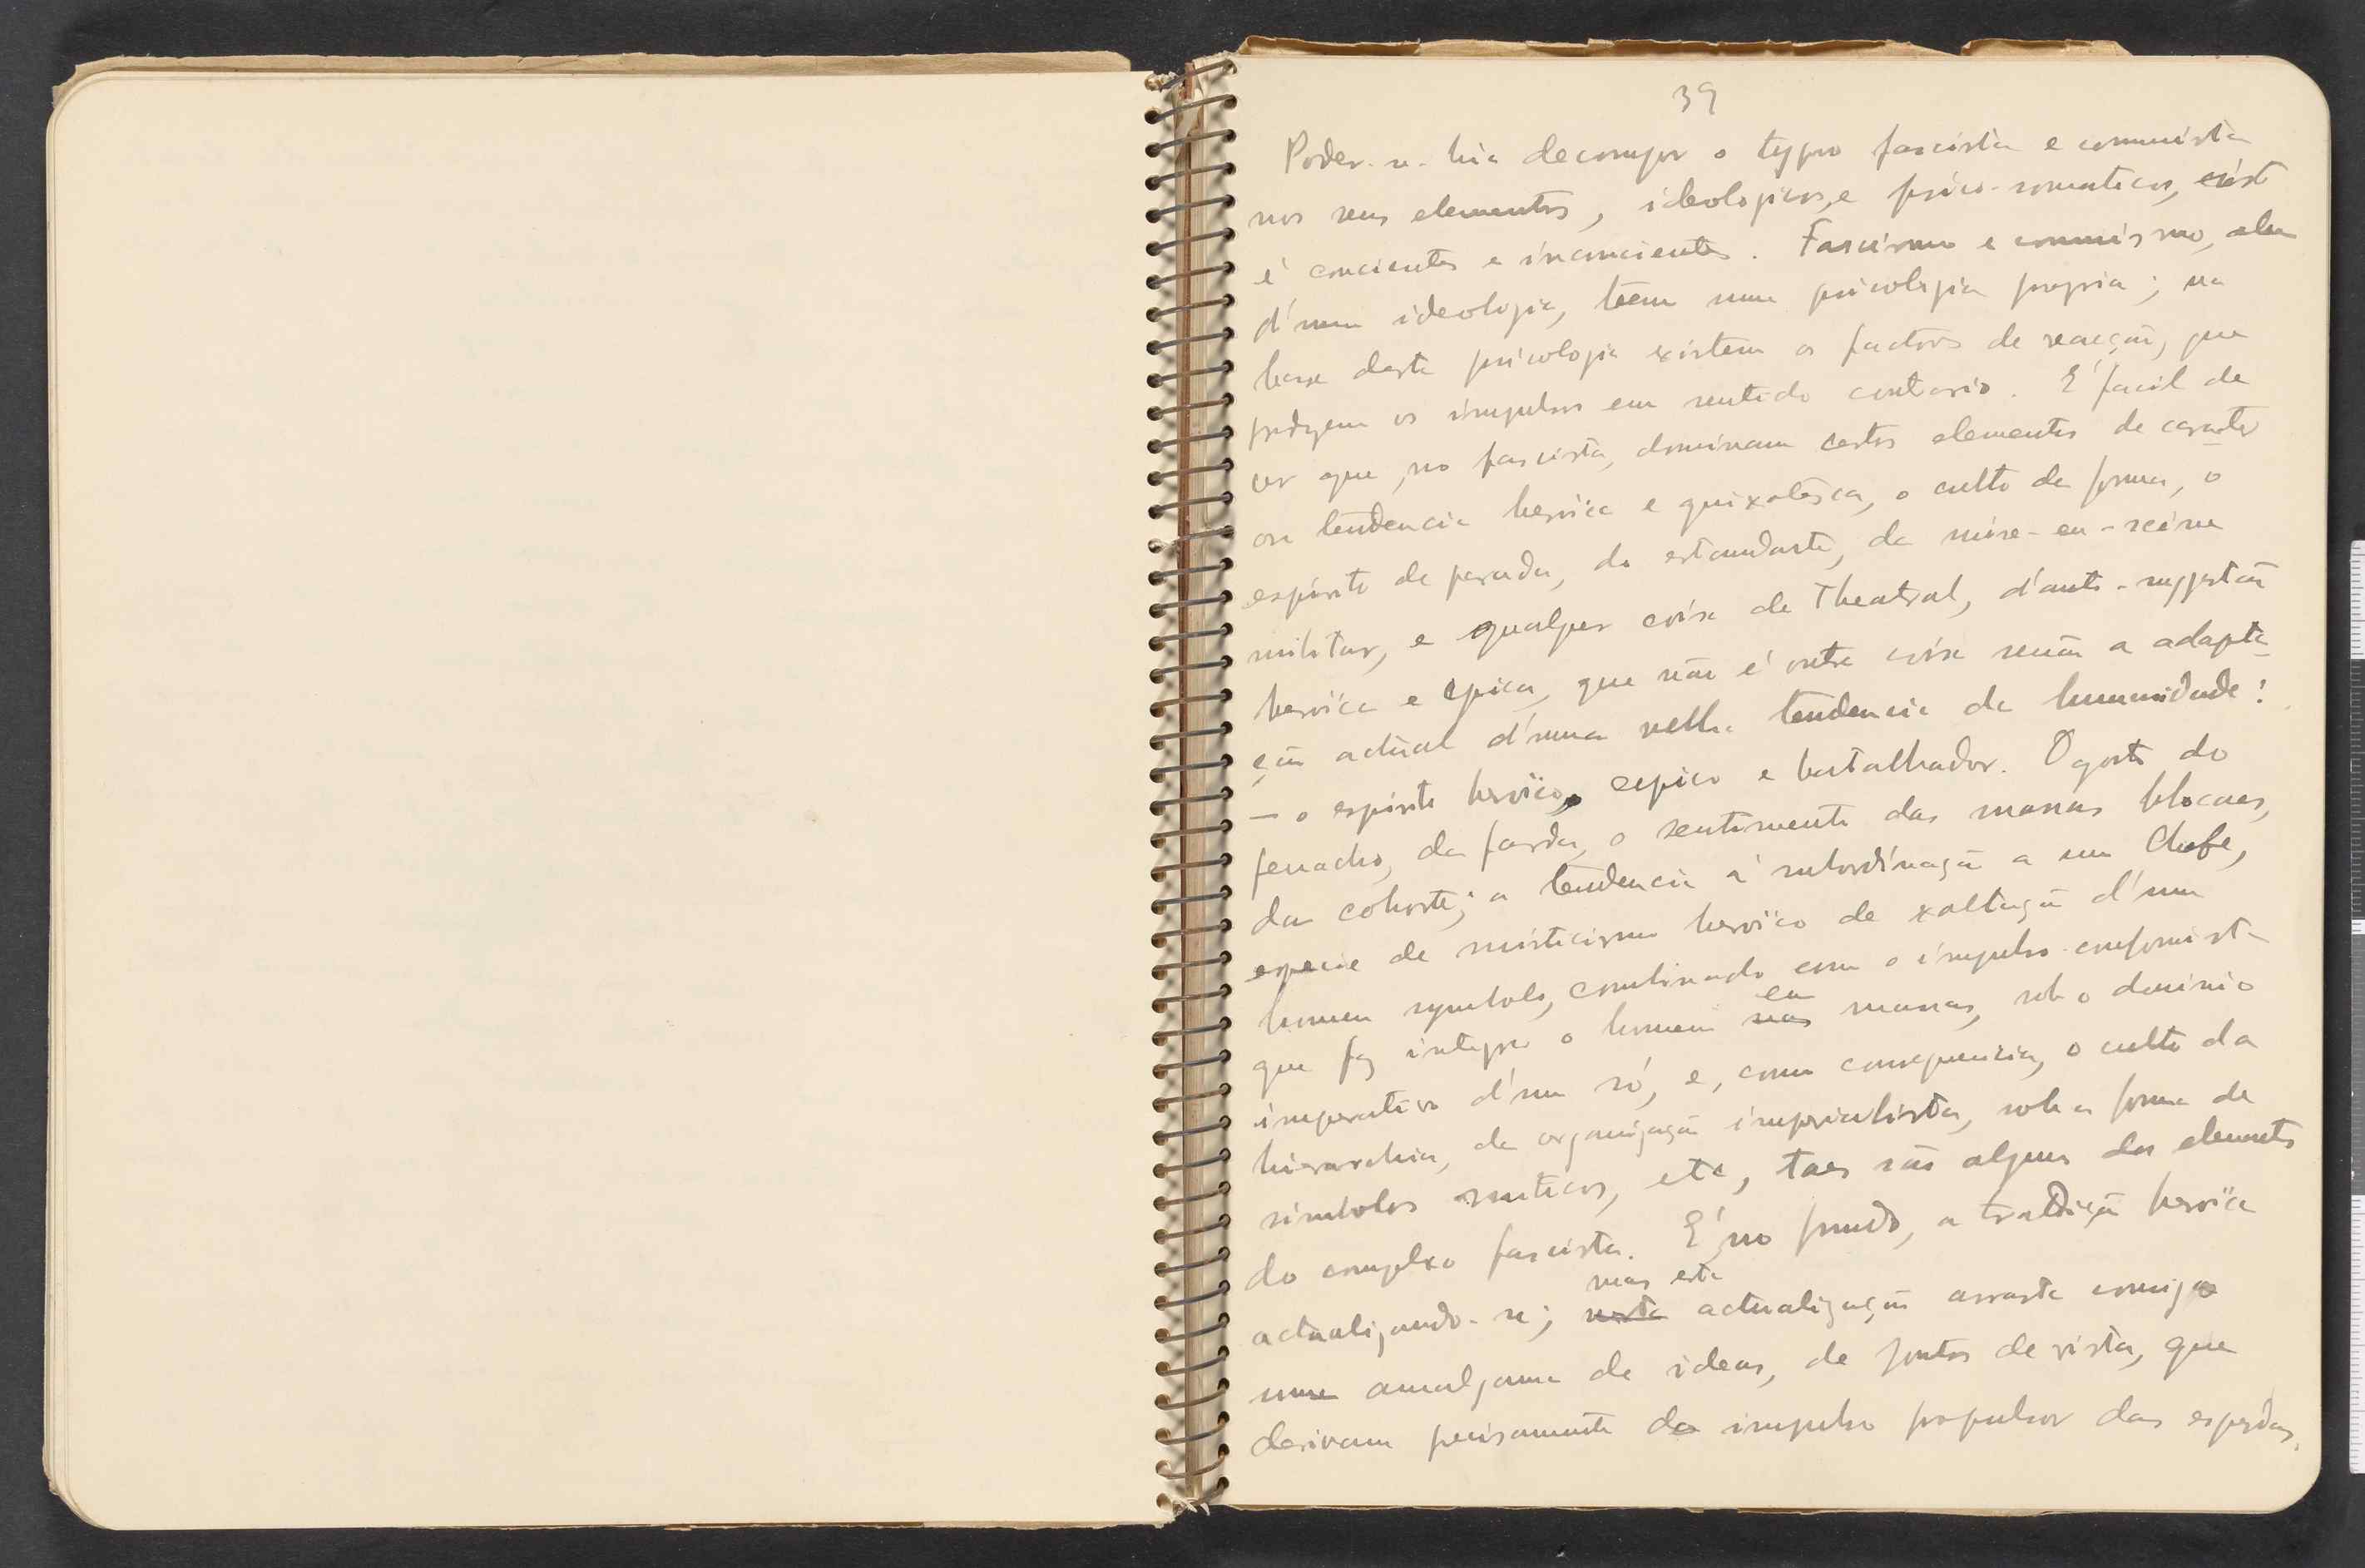 39
Poder-se-hia decompor o typo fascista e comunista
nos seus elementos, ideologicos, e psico-somaticos, isto
é concientes e inconcientes. Fascismo e comunismo, alem
d'uma ideologia, teem uma psicologia propria; na
base desta psicologia existem os factores de reacção, que
produzem os impulsos em sentido contrario. É facil de
ver que, no fascista, dominam certos elementos de caracter
ou tendencia heroica e quixotesca, o culto da forma, o
espirito de parada, do estandarte, da mise-en-scéne
militar, e qualquer coisa de Theatral, d'auto-suggestão
heroïca e epica, que não é outra coisa senão a adapta-
ção actual d'uma velha tendencia da humanidade:
— o espirito heroïco, epico e batalhador. O gosto do
penacho, da farda, o sentimento das massas blocaes,
da cohorte; a tendencia á subordinação a um Chefe,
especie de misticismo heroïco de exaltação d'um
homem symbolo, combinado com o impulso conformista
que faz integrar o homem nas em massas, sob o dominio
imperativo d'um só, e, como consequencia, o culto da
hierarchia, da organização imperialista, sob a forma de
simbolos miticos, etc, taes são alguns dos elementos
do complexo fascista. É, no fundo, a tradição heroïca
actualizando-se; mas esta actualização arrasta comsigo
uma amalgama de ideas, de pontos de vista, que
derivam precisamente do impulso propulsor das esperdas.